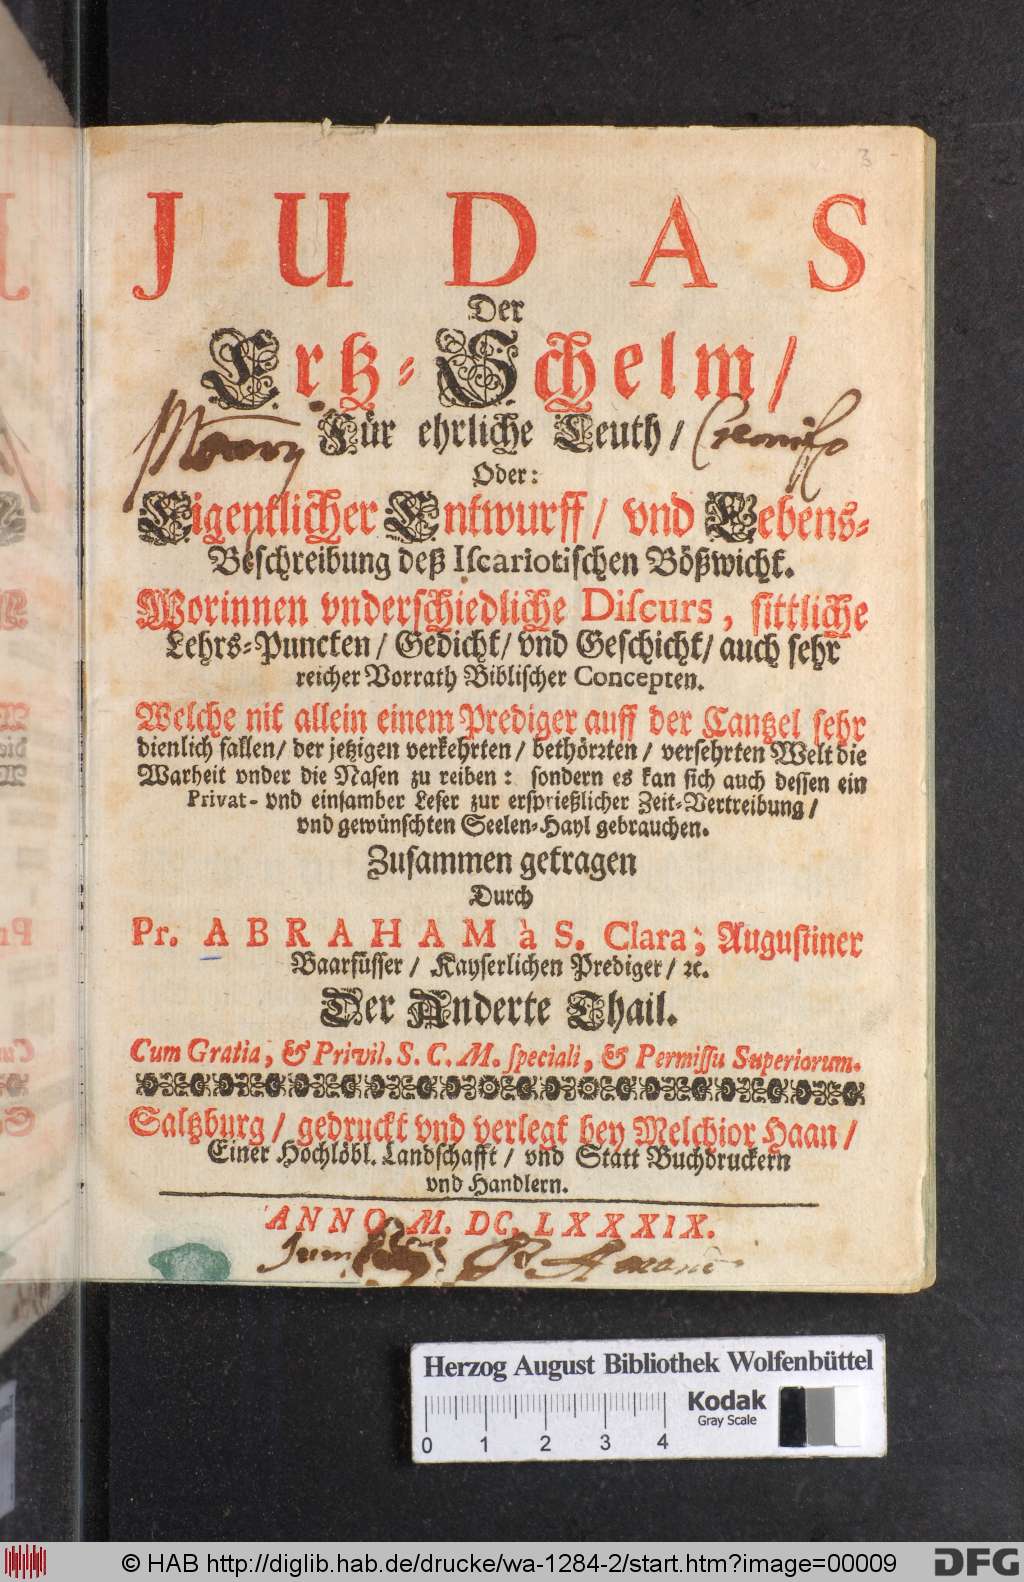 3
JUDAS
Der
Ertz-Schelm/
Für ehrliche Leuth/
Oder:
Eigentlicher Entwurff/ vnd Lebens-
Beschreibung deß Iscariotischen Bößwicht.
Worinnen vnderschiedliche Discurs, sittliche
Lehrs-Puncten/ Gedicht/ vnd Geschicht/ auch sehr
reicher Vorrath Biblischer Concepten.
Welche nit allein einem Prediger auff der Cantzel sehr
dienlich fallen/ der jetzigen verkehrten/ bethörzten/ versehrten Welt die
Warheit vnder die Nasen zu reiben: sondern es kan sich auch dessen ein
Privat- vnd einsamber Leser zur ersprießlicher Zeit-Vertreibung/
vnd gewünschten Seelen-Hayl gebrauchen.
Zusammen getragen
Durch
Pr. ABRAHAM à S. Clara; Augustiner
Baarfüsser/ Kayserlichen Prediger/ ꝛc.
Der Anderte Thail.
Cum Gratia, & Privil. S. C. M. speciali, & Permissu Superiorum.
Saltzburg/ gedruckt vnd verlegt bey Melchior Haan/
Einer Hochlöbl. Landschafft/ vnd Statt Buchdruckern
vnd Handlern.
ANNO M. DC. LXXXIX.
Herzog August Bibliothek Wolfenbüttel
Kodak
Gray Scale
0 1 2 3 4
© HAB http://diglib.hab.de/drucke/wa-1284-2/start.htm?image=00009
DFG